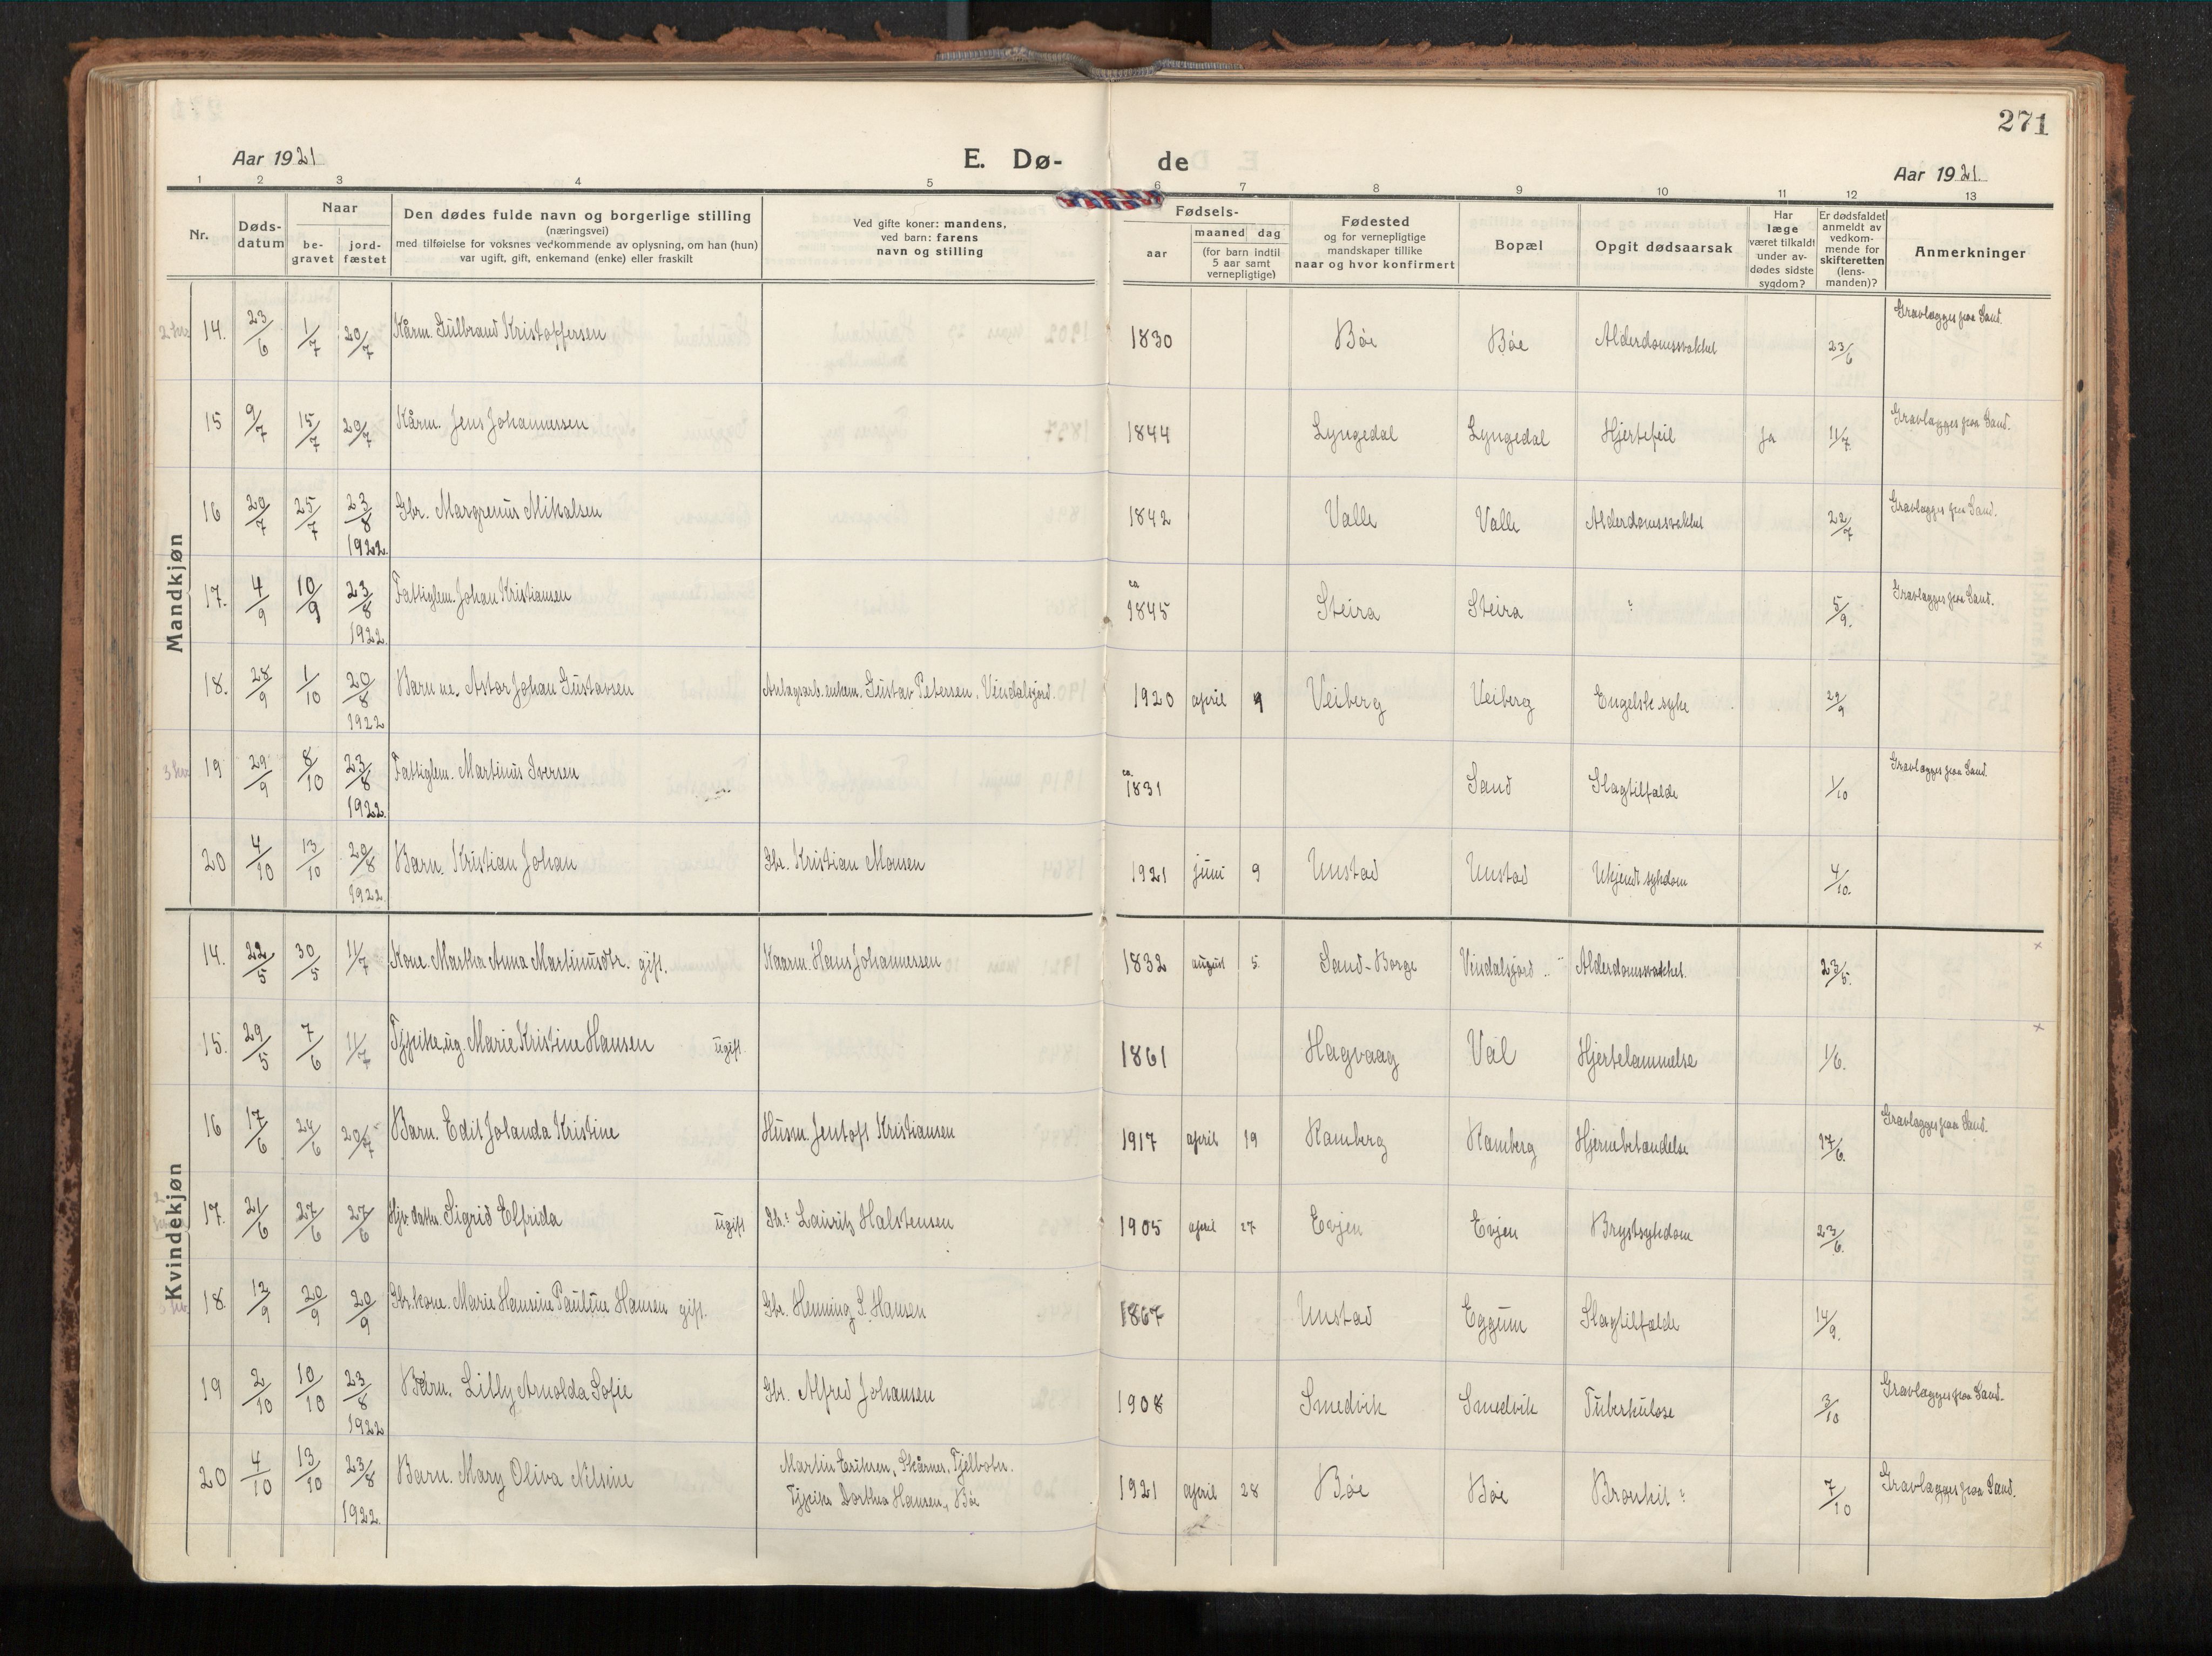 271
Aar 1921
E. Dø-
de
Aar 1921.
1 2 3 4 5 6 7 8 9 10 11 12 13
Nr.
Døds-
datum
Naar
be-
gravet
jord-
fæstet
Den dødes fulde navn og borgerlige stilling
(næringsvei)
med tilføielse for voksnes vedkommende av oplysning, om han (hun)
var ugift, gift, enkemand (enke) eller fraskilt
Ved gifte koner: mandens,
ved barn: farens
navn og stilling
Fødsels-
aar
maaned dag
(for barn indtil
5 aar samt
vernepligtige)
Fødested
og for vernepligtige
mandskaper tillike
naar og hvor konfirmert
Bopæl
Opgit dødsaarsak
Har
læge
været tilkaldt
under av-
dødes sidste
sygdom?
Er dødsfaldet
anmeldt av
vedkom-
mende for
skifteretten
(lens-
manden)?
Anmerkninger
Mandkjøn
14. 23/6 1/7 20/7 Kårm. Gulbrand Kristoffersen 1830 Böe Böe Alderdomssvakhet 23/6 Gravlægges paa Sand.
15 9/7 15/7 20/7 Kårm. Jens Johannessen 1844 Lyngedal Lyngedal Hjertefeil Ja 11/7. Gravlægges paa Sand.
16 20/7 25/7 23/8 1922. Gbr. Margrenus Mikalsen 1842 Valle Valle Alderdomssvakhet 22/7 Gravlægges paa Sand.
17. 4/9 10/9 23/8 1922. Fattiglem. Johan Kristiansen ca 1845 Steira Steira " 5/9. Gravlægges paa Sand.
18. 28/9 1/10 20/8 1922 Barn ue. Astor Johan Gustavsen Anlægsarb. enkem. Gustav Petersen, Vendalsjord. 1920 april 9 Veiberg Veiberg Engelsk syke 29/9
19 29/9 8/10 23/8 1922. Fattiglem. Martinus Iversen ca. 1831 Sand Slagtilfælde 1/10 Gravlægges paa Sand.
20 4/10 13/10 20/8 1922. Barn. Kristian Johan Gbr. Kristian Monsen 1921 juni 9 Unstad Unstad Ukjendt sykdom 4/10.
Kvindekjøn
14. 22/5 30/5 11/7 Kone. Martha Anna Martinusdtr. gift. Kaarm. Hans Johannessen 1832 august 5. Sand-Borge Vendalsjord Alderdomssvakhet. 23/5. x
15. 29/5 7/6 11/7 Tjpike, ug. Marie Kristine Hansen ugift. 1861 Hagvaag Val Hjertelammelse 1/6. x
16 17/6 24/6 20/7 Barn. Edit Jolanda Kristine Husm. Jentoft Kristiansen 1917 april 19 Ramberg Ramberg Hjernebetændelse 17/6. Gravlægges paa Sand.
17. 21/6 27/6 27/6 Hjv. datter. Sigrid Elfrida ugift Gbr. Lauritz Halstensen 1905 april 27 Evjen Evjen Brystsykdom 23/6.
18. 12/9 20/9 20/9 Gbr. kone. Marie Hansine Pauline Hansen gift. Gbr. Henning S. Hansen 1867 Unstad Eggum Slagtilfælde 14/9.
19 2/10 10/10 23/8 1922 Barn. Lilly Arnolda Sofie Gbr. Alfred Johansen 1908 Smedvik Smedvik Tuberkulose 3/10 Gravlægges paa Sand.
20 4/10 13/10 23/8 1922. Barn. Mary Oliva Nilsine Martin Eriksen, Skårnes, Tjelbotn. Tjpike Dorthea Hansen, Böe 1921 april 28 Böe Böe Bronkit 7/10 Gravlægges paa Sand.